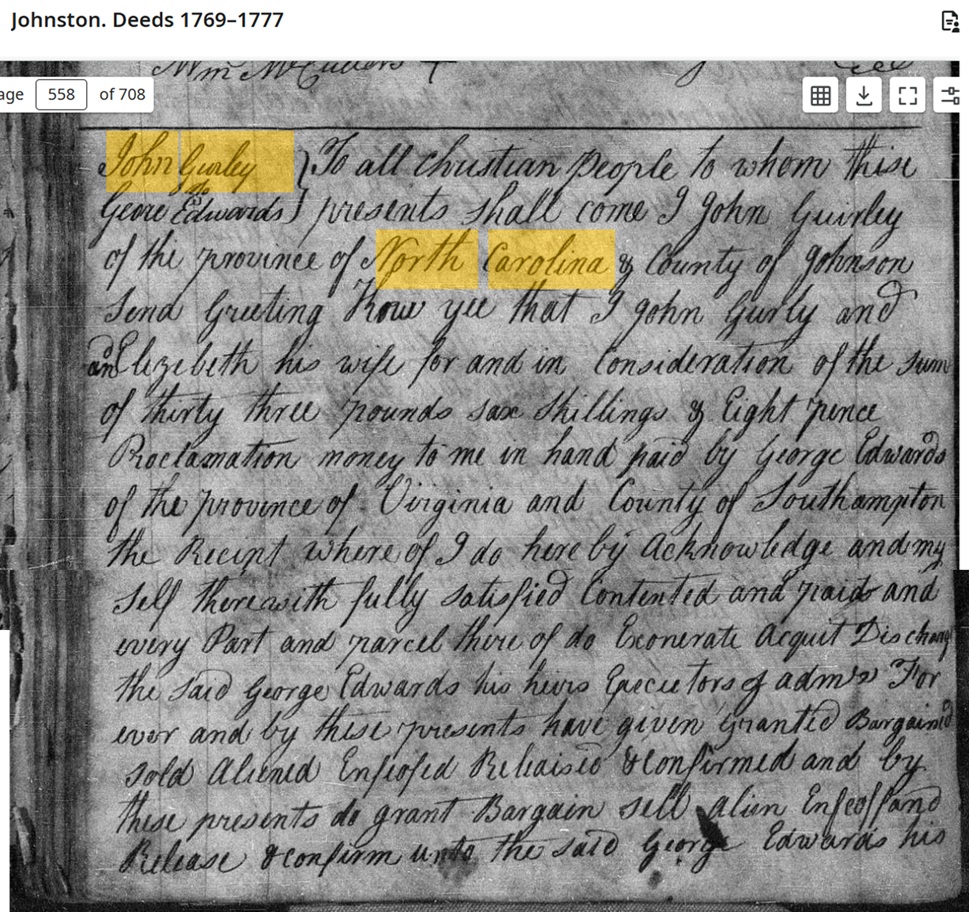 Johnston. Deeds 1769–1777
Wm McCullers +
age 558 of 708
John Gurley } To all christian People to whom this
to
Geore Edwards } presents shall come I John Guirley
of the province of North Carolina & County of Johnson
Send Greeting Know yee that I John Gurly and
and Elizebeth his wife for and in Consideration of the Sum
of thirty three pounds sax Shillings & Eight pence
Proclamation money to me in hand paid by George Edwards
of the province of Virginia and County of Southampton
the Recipt where of I do here by Acknowledge and my
Self therewith fully Satisfied Contented and paid and
every Part and parcel there of do Exonerate Acquit Discharg
the Said George Edwards his heirs Executors & admrs For
ever and by these presents have given Granted Bargained
Sold Aliened Enfeofed Releaised & Confirmed and by
these presents do grant Bargain sell alien Enfeoff and
Release & confirm unto the said George Edwards his